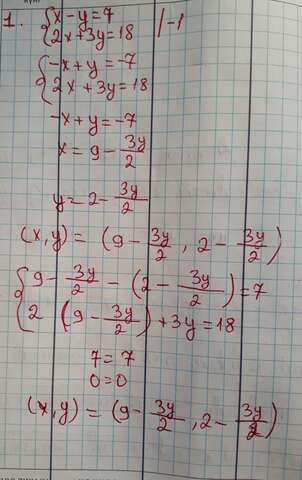 1. { x - y = 7 | /-1
{ 2x + 3y = 18
{ -x + y = -7
{ 2x + 3y = 18
-x + y = -7
x = 9 - 3y/2
y = 2 - 3y/2
(x, y) = (9 - 3y/2, 2 - 3y/2)
{ 9 - 3y/2 - (2 - 3y/2) = 7
{ 2 (9 - 3y/2) + 3y = 18
7 = 7
0 = 0
(x, y) = (9 - 3y/2, 2 - 3y/2)